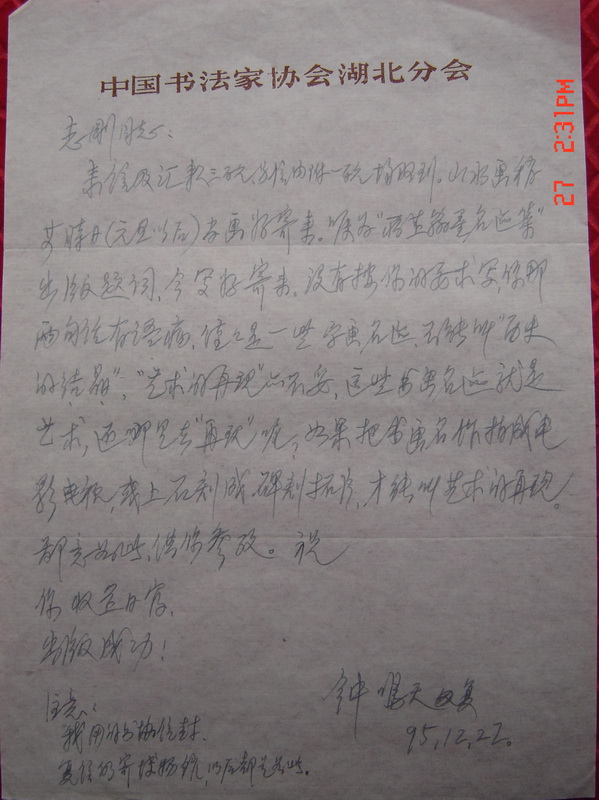 中国书法家协会湖北分会
志刚同志：
来信及汇款三百元，信内附一百元均收到。山水画稍
等时日(元旦以后)书画好寄来。嘱为"翰墨名迹集"
出版题词，今写好寄来，没有按你的要求写，你那
两句话有语病，仅仅是一些字画名迹，不能叫"历史
的结晶"，"艺术的再现"亦不妥，这些书画名迹就是
艺术，还哪里去"再现"呢，如果把书画名作拍成电
影电视，或上石刻成碑刻拓片，才能叫艺术的再现。
鄙意如此，供你参考。祝
你收益日富，
出版成功！
钟鸣天 敬复
95,12,22。
注意：
我用的书协信封，
复信仍寄博物馆，以后都是如此。
27 2:31PM